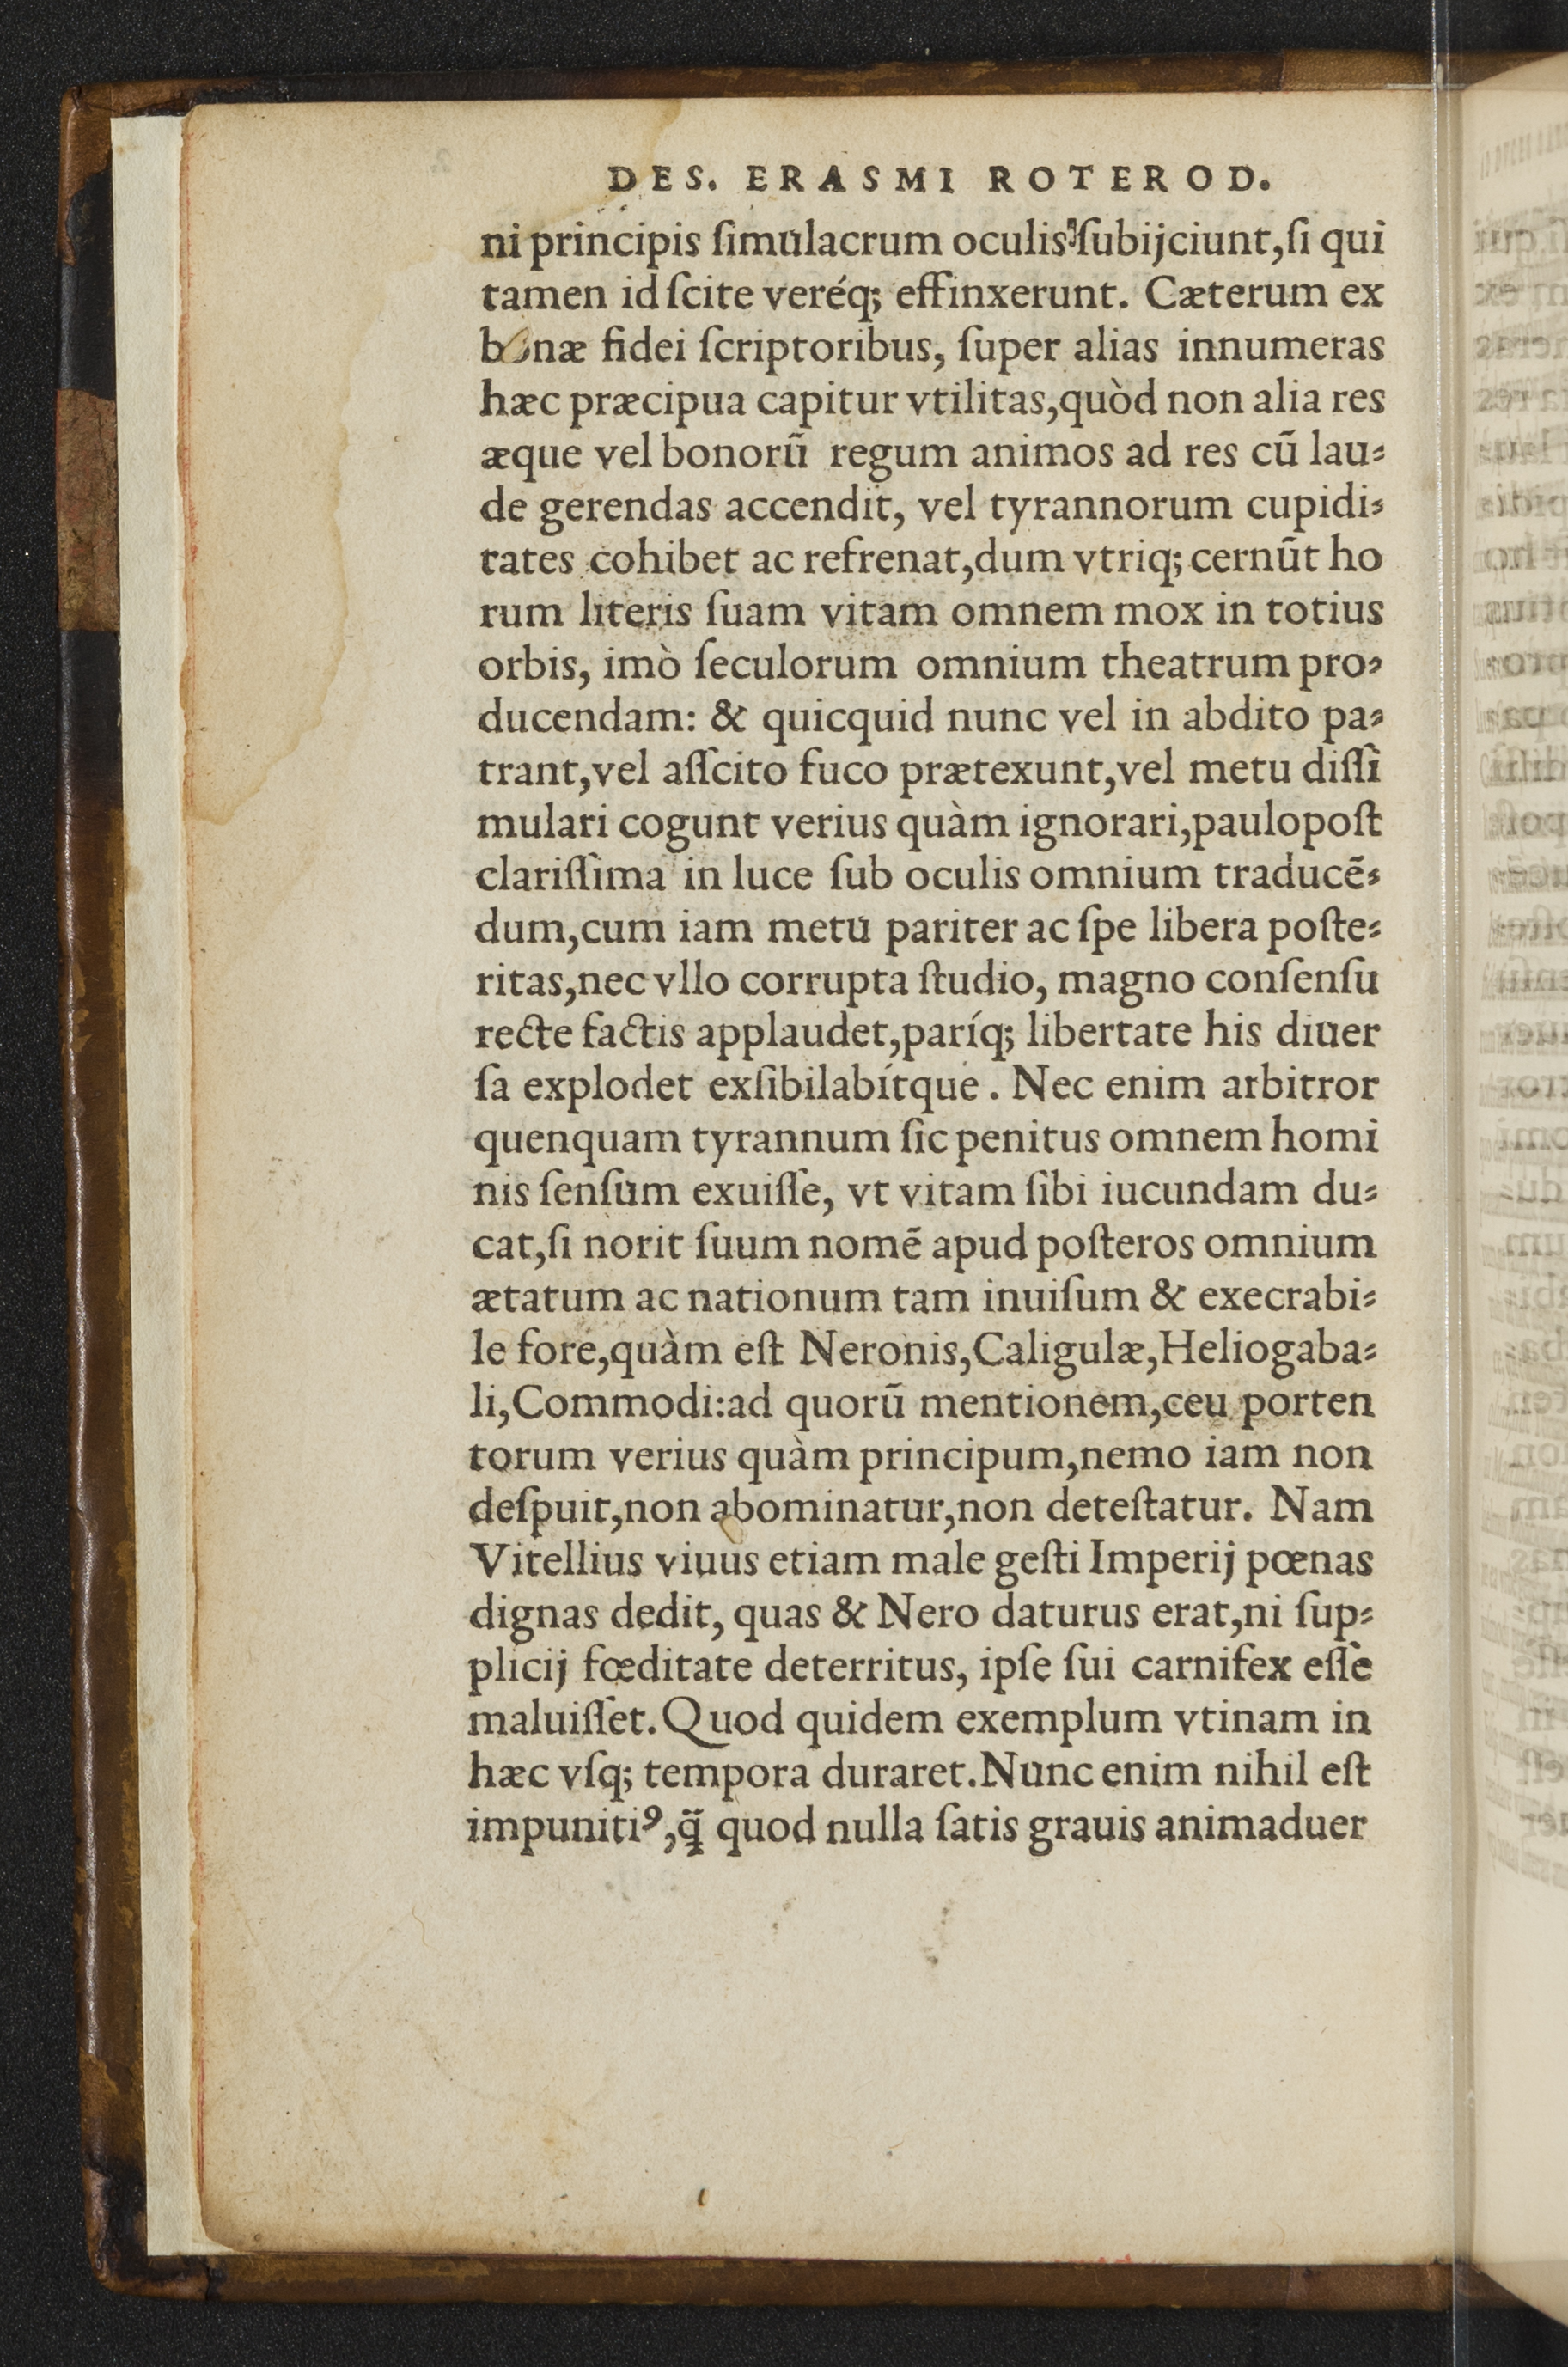 DES. ERASMI ROTEROD.
ni principis ſimulacrum oculis ſubijciunt,ſi qui
tamen id ſcite veréq; effinxerunt. Cæterum ex
bonæ fidei ſcriptoribus, ſuper alias innumeras
hæc præcipua capitur vtilitas,quòd non alia res
æque vel bonorū regum animos ad res cū lau⸗
de gerendas accendit, vel tyrannorum cupidi⸗
tates cohibet ac refrenat,dum vtriq; cernūt ho
rum literis ſuam vitam omnem mox in totius
orbis, imò ſeculorum omnium theatrum pro⸗
ducendam: & quicquid nunc vel in abdito pa⸗
trant,vel aſſcito fuco prætexunt,vel metu diſſi
mulari cogunt verius quàm ignorari,paulopoſt
clariſſima in luce ſub oculis omnium traducē⸗
dum,cum iam metu pariter ac ſpe libera poſte⸗
ritas,nec vllo corrupta ſtudio, magno conſenſu
recte factis applaudet,paríq; libertate his diuer
ſa explodet exſibilabítque. Nec enim arbitror
quenquam tyrannum ſic penitus omnem homi
nis ſenſum exuiſſe, vt vitam ſibi iucundam du⸗
cat,ſi norit ſuum nomē apud poſteros omnium
ætatum ac nationum tam inuiſum & execrabi⸗
le fore,quàm eſt Neronis,Caligulæ,Heliogaba⸗
li,Commodi:ad quorū mentionem,ceu porten
torum verius quàm principum,nemo iam non
deſpuit,non abominatur,non deteſtatur. Nam
Vitellius viuus etiam male geſti Imperij pœnas
dignas dedit, quas & Nero daturus erat,ni ſup⸗
plicij fœditate deterritus, ipſe ſui carnifex eſſe
maluiſſet. Quod quidem exemplum vtinam in
hæc vſq; tempora duraret.Nunc enim nihil eſt
impunitiꝰ,q̃ quod nulla ſatis grauis animaduer